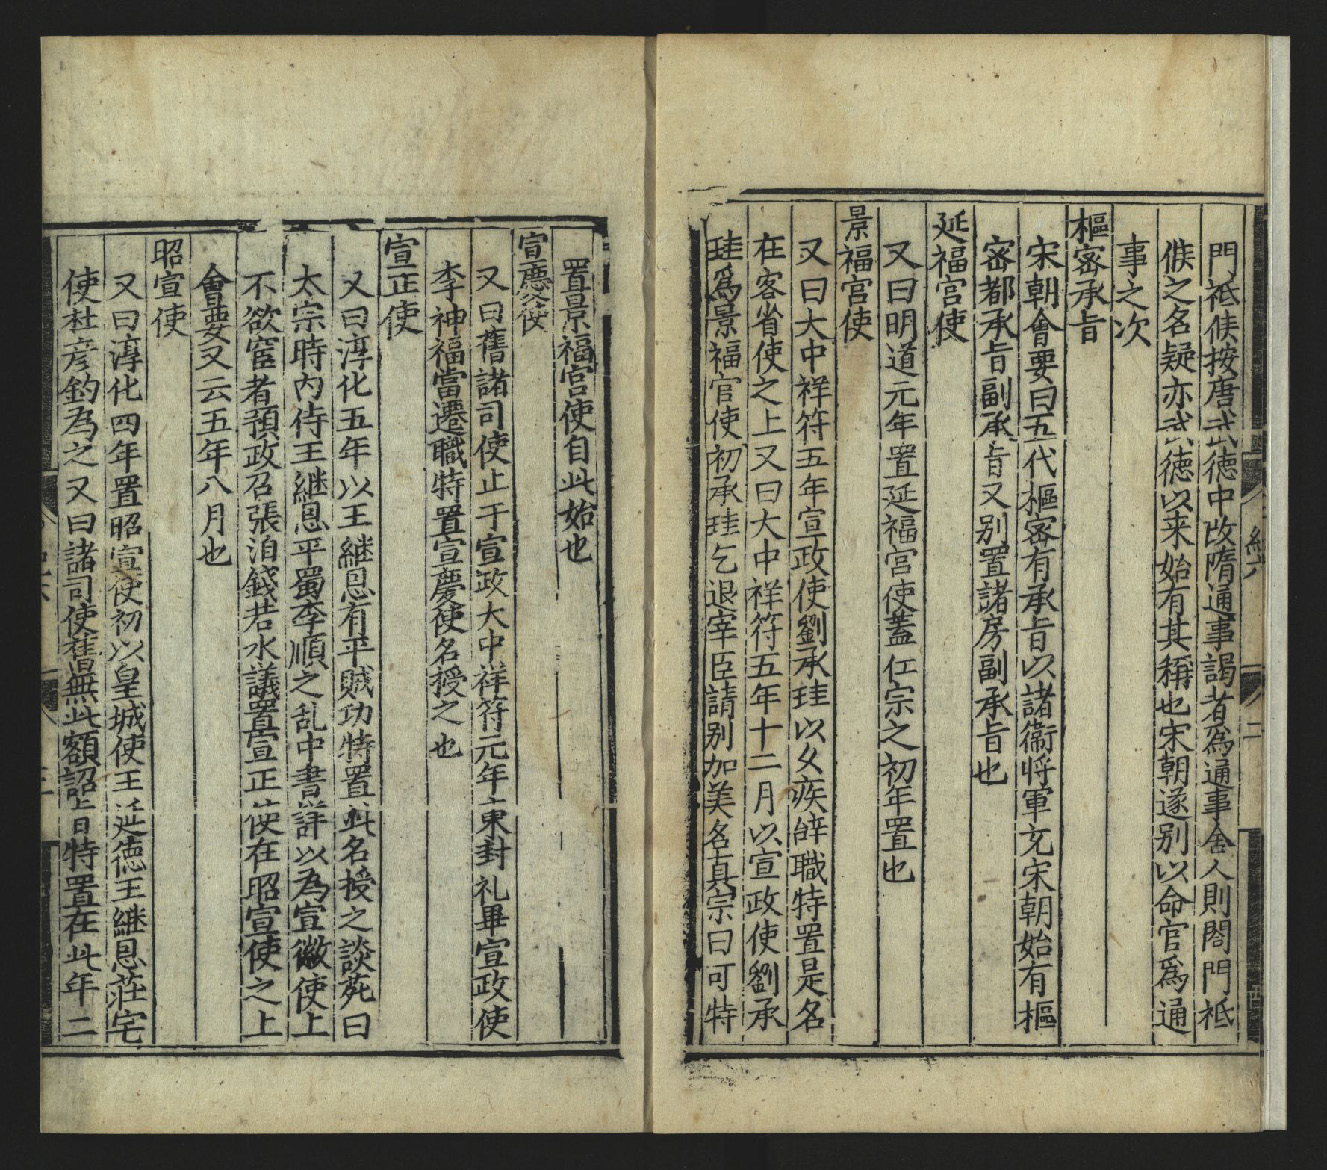 門祗候按唐武德中改隋通事謁者爲通事舍人則閤門祗
候之名疑亦武德以来始有其稱也宋朝遂别以命官爲通
事之次
樞密承旨
宋朝會要曰五代樞密有承旨以諸衞将軍充宋朝始有樞
密都承旨副承旨又别置諸房副承旨也
延福宮使
又曰明道元年置延福宮使蓋仁宗之初年置也
景福宮使
又曰大中祥符五年宣政使劉承珪以久疾辝職特置是名
在客省使之上又曰大中祥符五年十二月以宣政使劉承
珪爲景福宮使初承珪乞退宰臣請别加美名真宗曰可特
置景福宮使自此始也
宣慶使
又曰舊諸司使止于宣政大中祥符元年東封礼畢宣政使
李神福當遷職特置宣慶使名授之也
宣正使
又曰淳化五年以王継恩有平賊功特置此名授之談苑曰
太宗時内侍王継恩平蜀李順之乱中書詳以為宣徽使上
不欲宦者預政召張洎錢若水議置宣正使在昭宣使之上
會要又云五年八月也
昭宣使
又曰淳化四年置昭宣使初以皇城使王延徳王継恩莊宅
使杜彦鈞為之又曰諸司使舊無此額詔旨特置在此年二
紀六
二
三